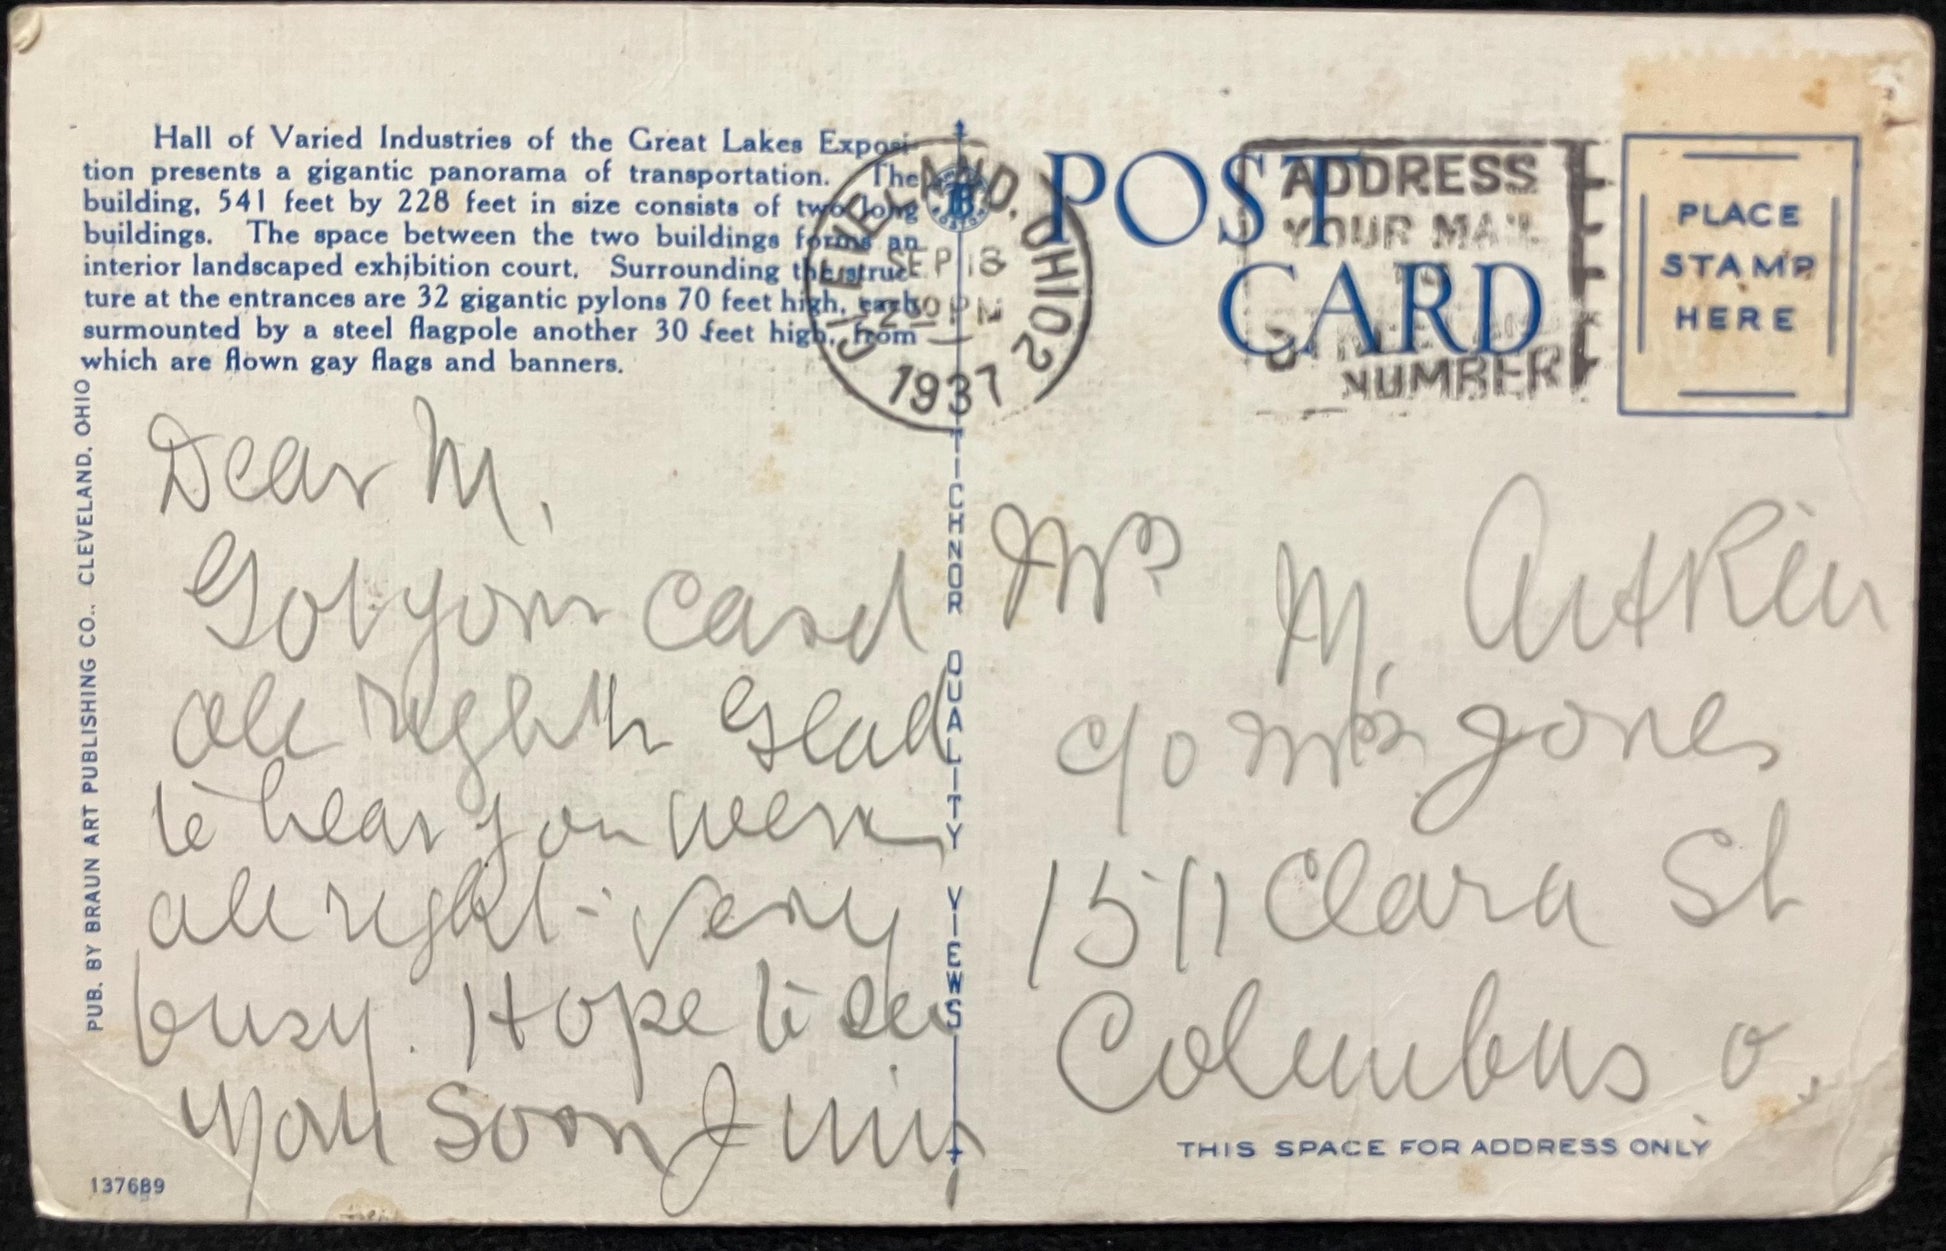 Hall of Varied Industries of the Great Lakes Exposi-
tion presents a gigantic panorama of transportation. The
building, 541 feet by 228 feet in size consists of two long
buildings. The space between the two buildings forms an
interior landscaped exhibition court. Surrounding the struc-
ture at the entrances are 32 gigantic pylons 70 feet high, each
surmounted by a steel flagpole another 30 feet high, from
which are flown gay flags and banners.
PUB. BY BRAUN ART PUBLISHING CO., CLEVELAND, OHIO
Dear M,
Got your card
all right Glad
to hear you were
all right - very
busy. Hope to see
you soon
137689
TICHNOR QUALITY VIEWS
CLEVELAND, OHIO 2
SEP 18
30 PM
1937
POST
CARD
ADDRESS
YOUR MAIL
TO
STREET AND
NUMBER
PLACE
STAMP
HERE
Mrs M. Aitken
c/o Mrs Jones
1511 Clara St
Columbus O.
THIS SPACE FOR ADDRESS ONLY